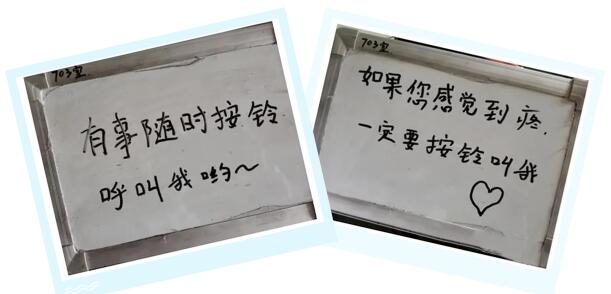 703室
有事随时按铃
呼叫我哟~
703室
如果您感觉到疼,
一定要按铃叫我